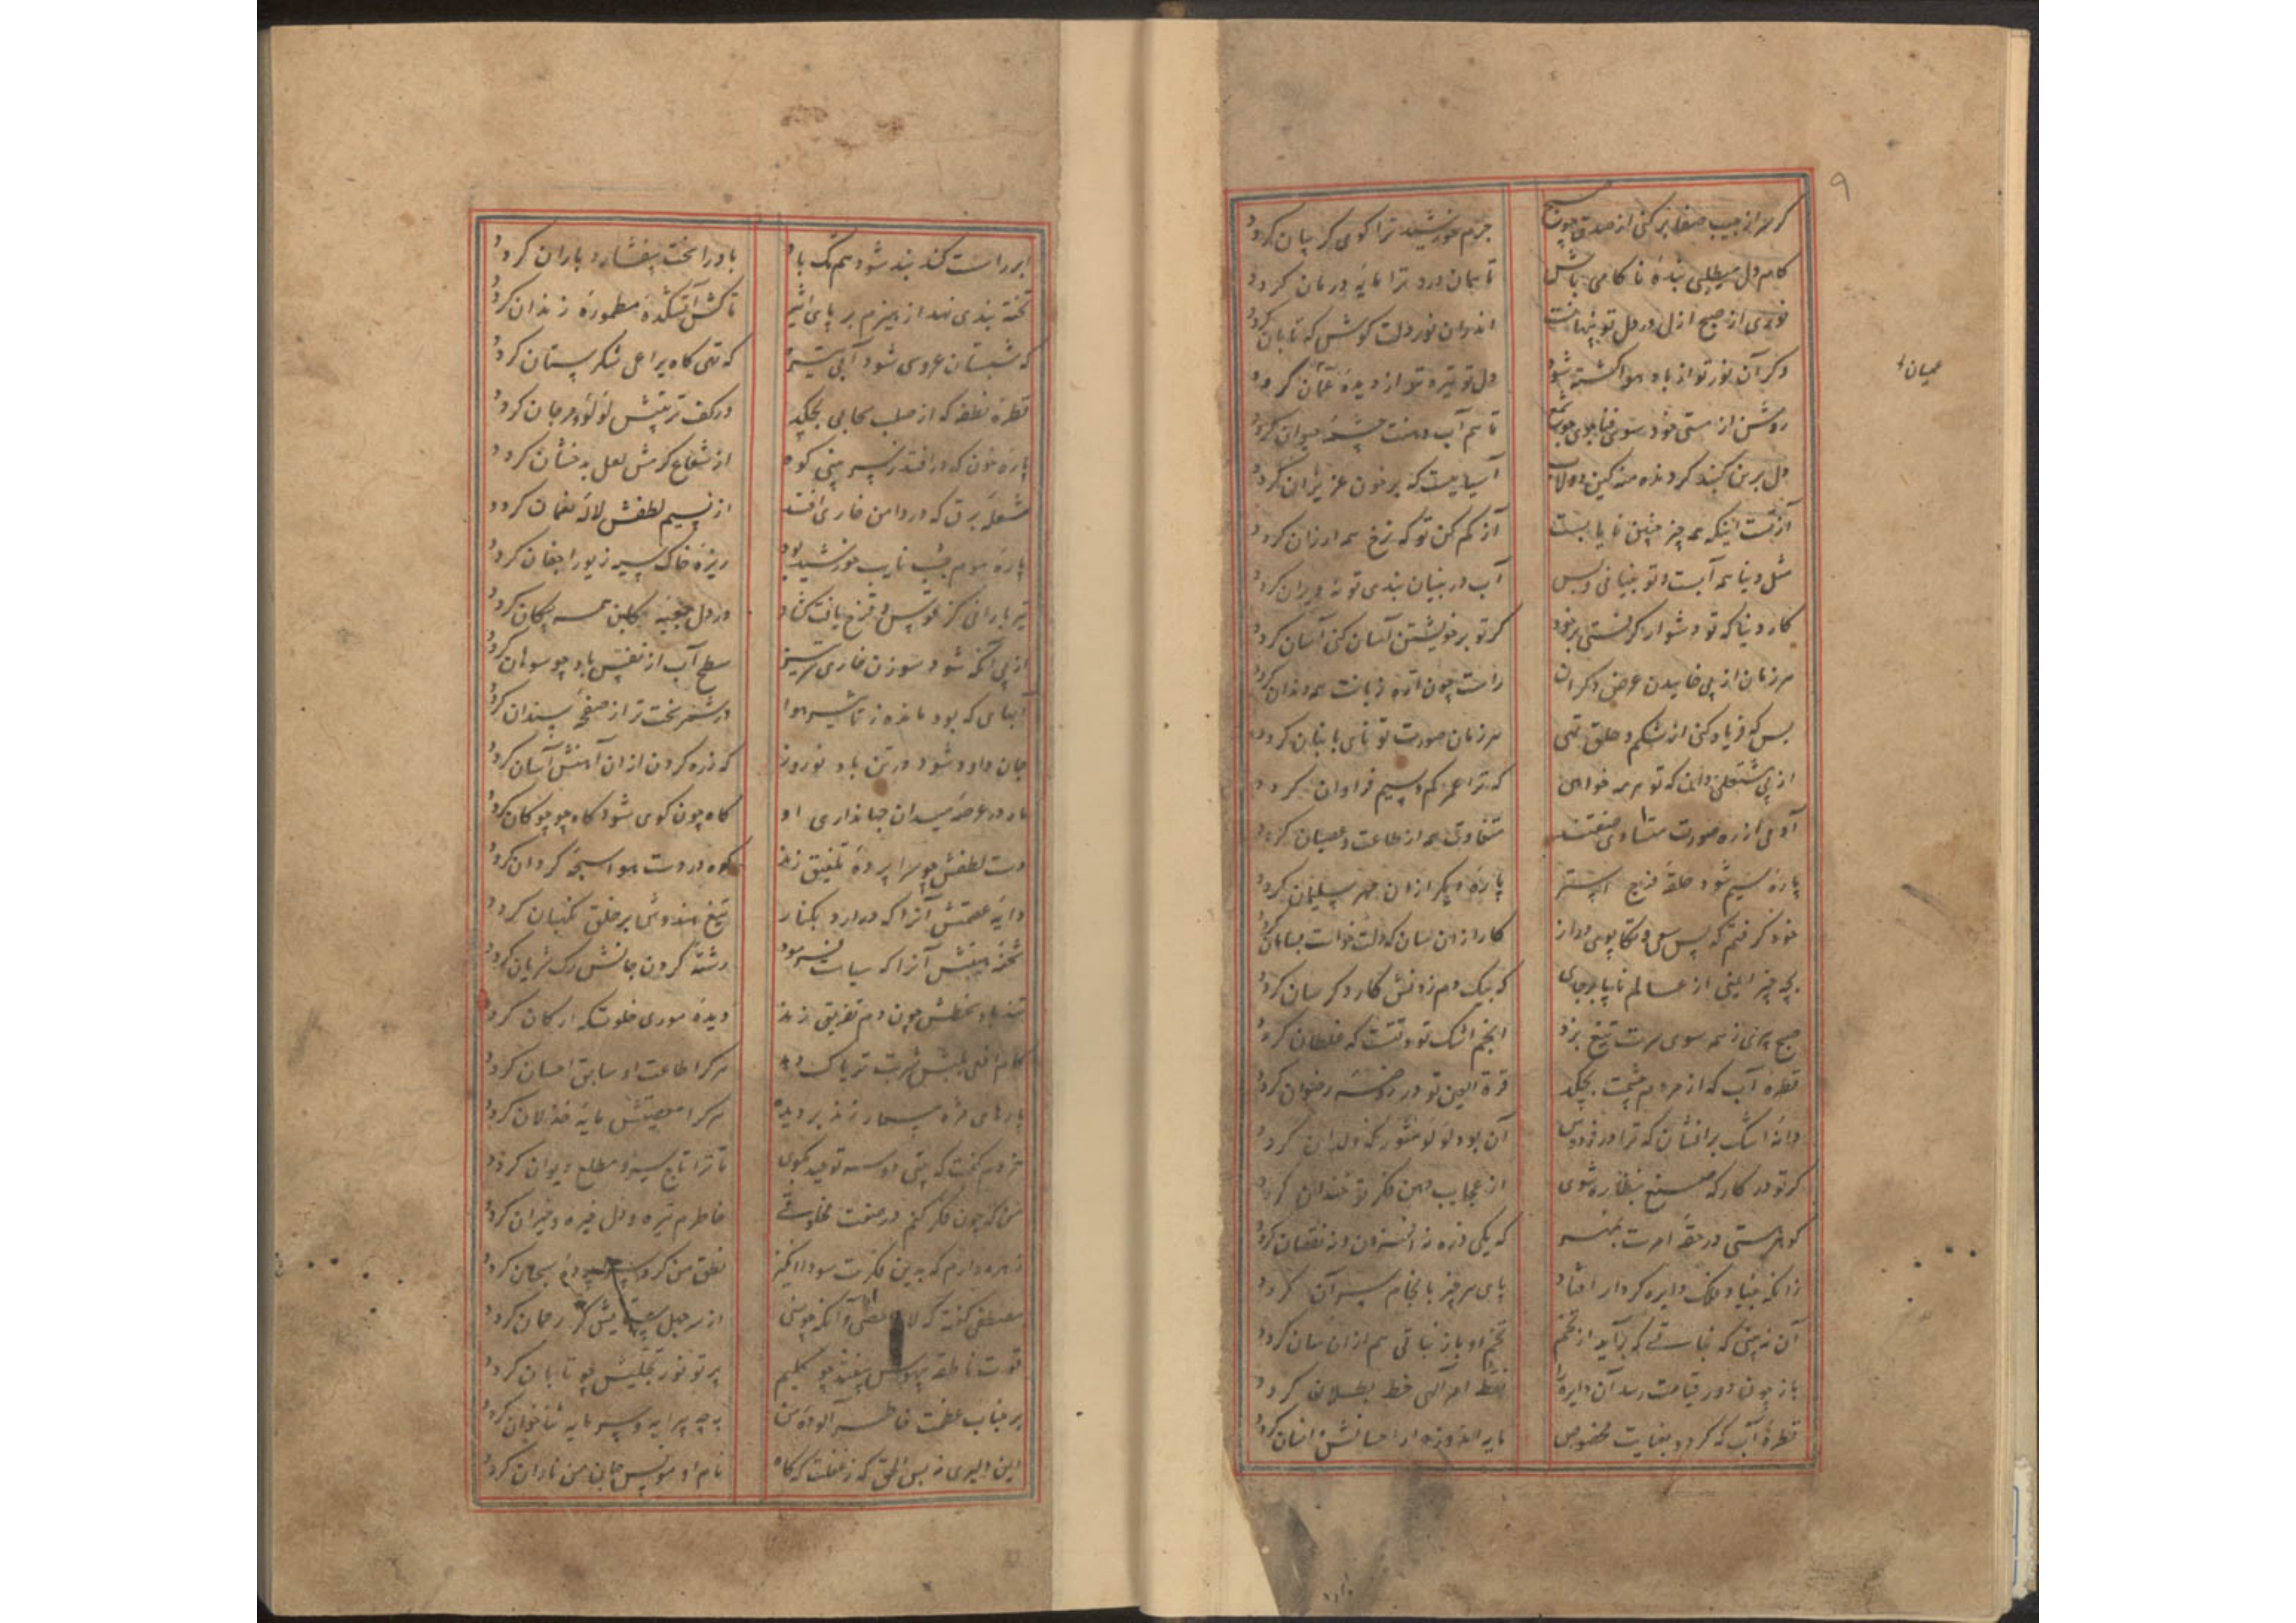 ۹
گر سر از جیب صفا بر کنی از صدق چو صبح جرم خورشید ترا کوی کریبان کردد
کام دل میطلبی بنده ناکامی باش تا همان درد ترا مایه درمان کردد
نوری از صبح ازل در دل تو پنهانست اندران نور دلت کوش که تابان کردد
وکر آن نور تو از باد هوا کشته شود دل تو تیره تر از دیده عمیان کردد
عمیان
روشن از هستی خود سوی فنا چون شمع تا هم آب دهنت چشمه حیوان کردد
دل برین کنبد کردنده منه کین دولاب آسیابیست که بر خون عزیزان کردد
آز تست اینکه همه چیز چنین نایابست آز کم کن تو که نرخ همه ارزان کردد
مثل دنیا همه آبست و تو بنیانی و بس آب در بنیان بندی تو نه ویران کردد
کار دنیا که تو دشوار کرفتی بر خود کر تو بر خویشتن آسان کنی آسان کردد
هر زمان از پی خاییدن عرض دکران راست چون اره زبانت همه دندان کردد
بس که فریاد کنی از شکم و حلق تهی هر زمان صورت تو نای با نبان کردد
از پی شغلی دانی که تو هر مه خواهی که ترا عمر کم و سیم فراوان کردد
آدمی از ره صورت متساوی صفتند متفاوت همه از طاعت و عصیان کردد
پاره سیم شود حلقه فرج استر پاره دیکر ازان مهر سلیمان کردد
خود کرفتم که پس سعی و تکاپوی دراز کار ازان سان که دلت خواست بسامان کردد
بچه چیز ایمنی از عالم ناپا برجای که بیک دم زدنش کار دکر سان کردد
صبح پیری ز همه سوی سرت تیغ بزد انجم اشک تو وقتست که غلطان کردد
قطره آب که از مردم چشمت بچکد قرة العین تو در روضه رضوان کردد
دانه اشک بر افشان که ترا در فردوس آن بود لولو منثور که ولدان کردد
کر تو در کارکه صنع بنظاره شوی از عجایب دهن فکر تو خندان کردد
کوهر هستی در حقه امرت بمهر که یکی ذره نه افزون و نه نقصان کردد
زانکه بنیاد فلک دایره کردار افتاد پای هر چیز بانجام سر آن کردد
آن نه بینی که نباتی که برآید از تخم تخم او باز نباتی هم ازان سان کردد
باز چون دور قیامت رسد آن دایره را نقط امر الهی خط بطلان کردد
قطره آب که کردد بعنایت مخصوص مایه اندوزد از احسانش انسان کردد
ابر راست کند بند شود هم تک باد باد را سخت بیفشارد باران کردد
تخته بندی نهد از هیزم بر پای اثیر تا کش آتشکده مطموره زندان کردد
که شبستان عروسی شود آبی که تهی کاه یراعی شکرستان کردد
قطره نطفه که از صلب سحابی بچکد در کف تربیتش لولو و مرجان کردد
پاره خون که در افتد پس بینی کوه از شعاع کرمش لعل بدخشان کردد
شعله برق که در دامن خاری افتد از نسیم لطفش لاله نعمان کردد
پاره موم بشب نایب خورشید بود ریزه خاک سیه زیور اجفان کردد
تیر بارانی کز قوس قزح یافت کشاد در دل غنچه کلبن همه پیکان کردد
از پی آنکه شود سوزن خاری سر تیز سطح آب از نفس باد چو سوهان کردد
آبهای که بود مانده ز تاثیر هوا در شمر سخت تر از صفحه سندان کردد
جان داود شود در تن باد نوروز که زره کردن ازان آهنش آسان کردد
ماه در عرصه میدان جهانداری او کاه چون کوی شود کاه چو چوکان کردد
دست لطفش چو سراپرده تلفیق زند کوه در دست هوا سبحه کردان کردد
دایه عصمتش آنرا که درآرد بکنار تیغ هندوشی بر خلق نکهبان کردد
شحنه هیبتش آنرا که سیاست فرمود رشته کردن جانش رک شریان کردد
تند باد سخطش چون دم تفریق زند دیده موری خلوتکه ارکان کردد
کام افعی بلبش شربت تریاک دهد هر کرا طاعت او سابق احسان کردد
پارهای مژه مسمار زند بر دیده هر کرا معصیتش مایه خذلان کردد
خردم کفت که بیتی دو سه توحید بکوی تا ترا تاج سر و مطلع دیوان کردد
من که چون فکر کنم در صفت مخلوقی خاطرم تیره و دل خیره و حیران کردد
زهره دارم که بدین فکرت سودا انکیز نطق من کرد سراپرده سبحان کردد
مصطفی کفته که لا احصی و آنکه چو منی از سر جهل ستایش کر رحمان کردد
قوت ناطقه بیهوش بیفتد چو کلیم پرتو نور تجلیش چو تابان کردد
بر جناب عظمت خاطر آلوده من بچه پیرایه و سرمایه ثنا خوان کردد
این دلیری نه بس الحق که ز غفلت که کاه نام او مونس جان من نادان کردد